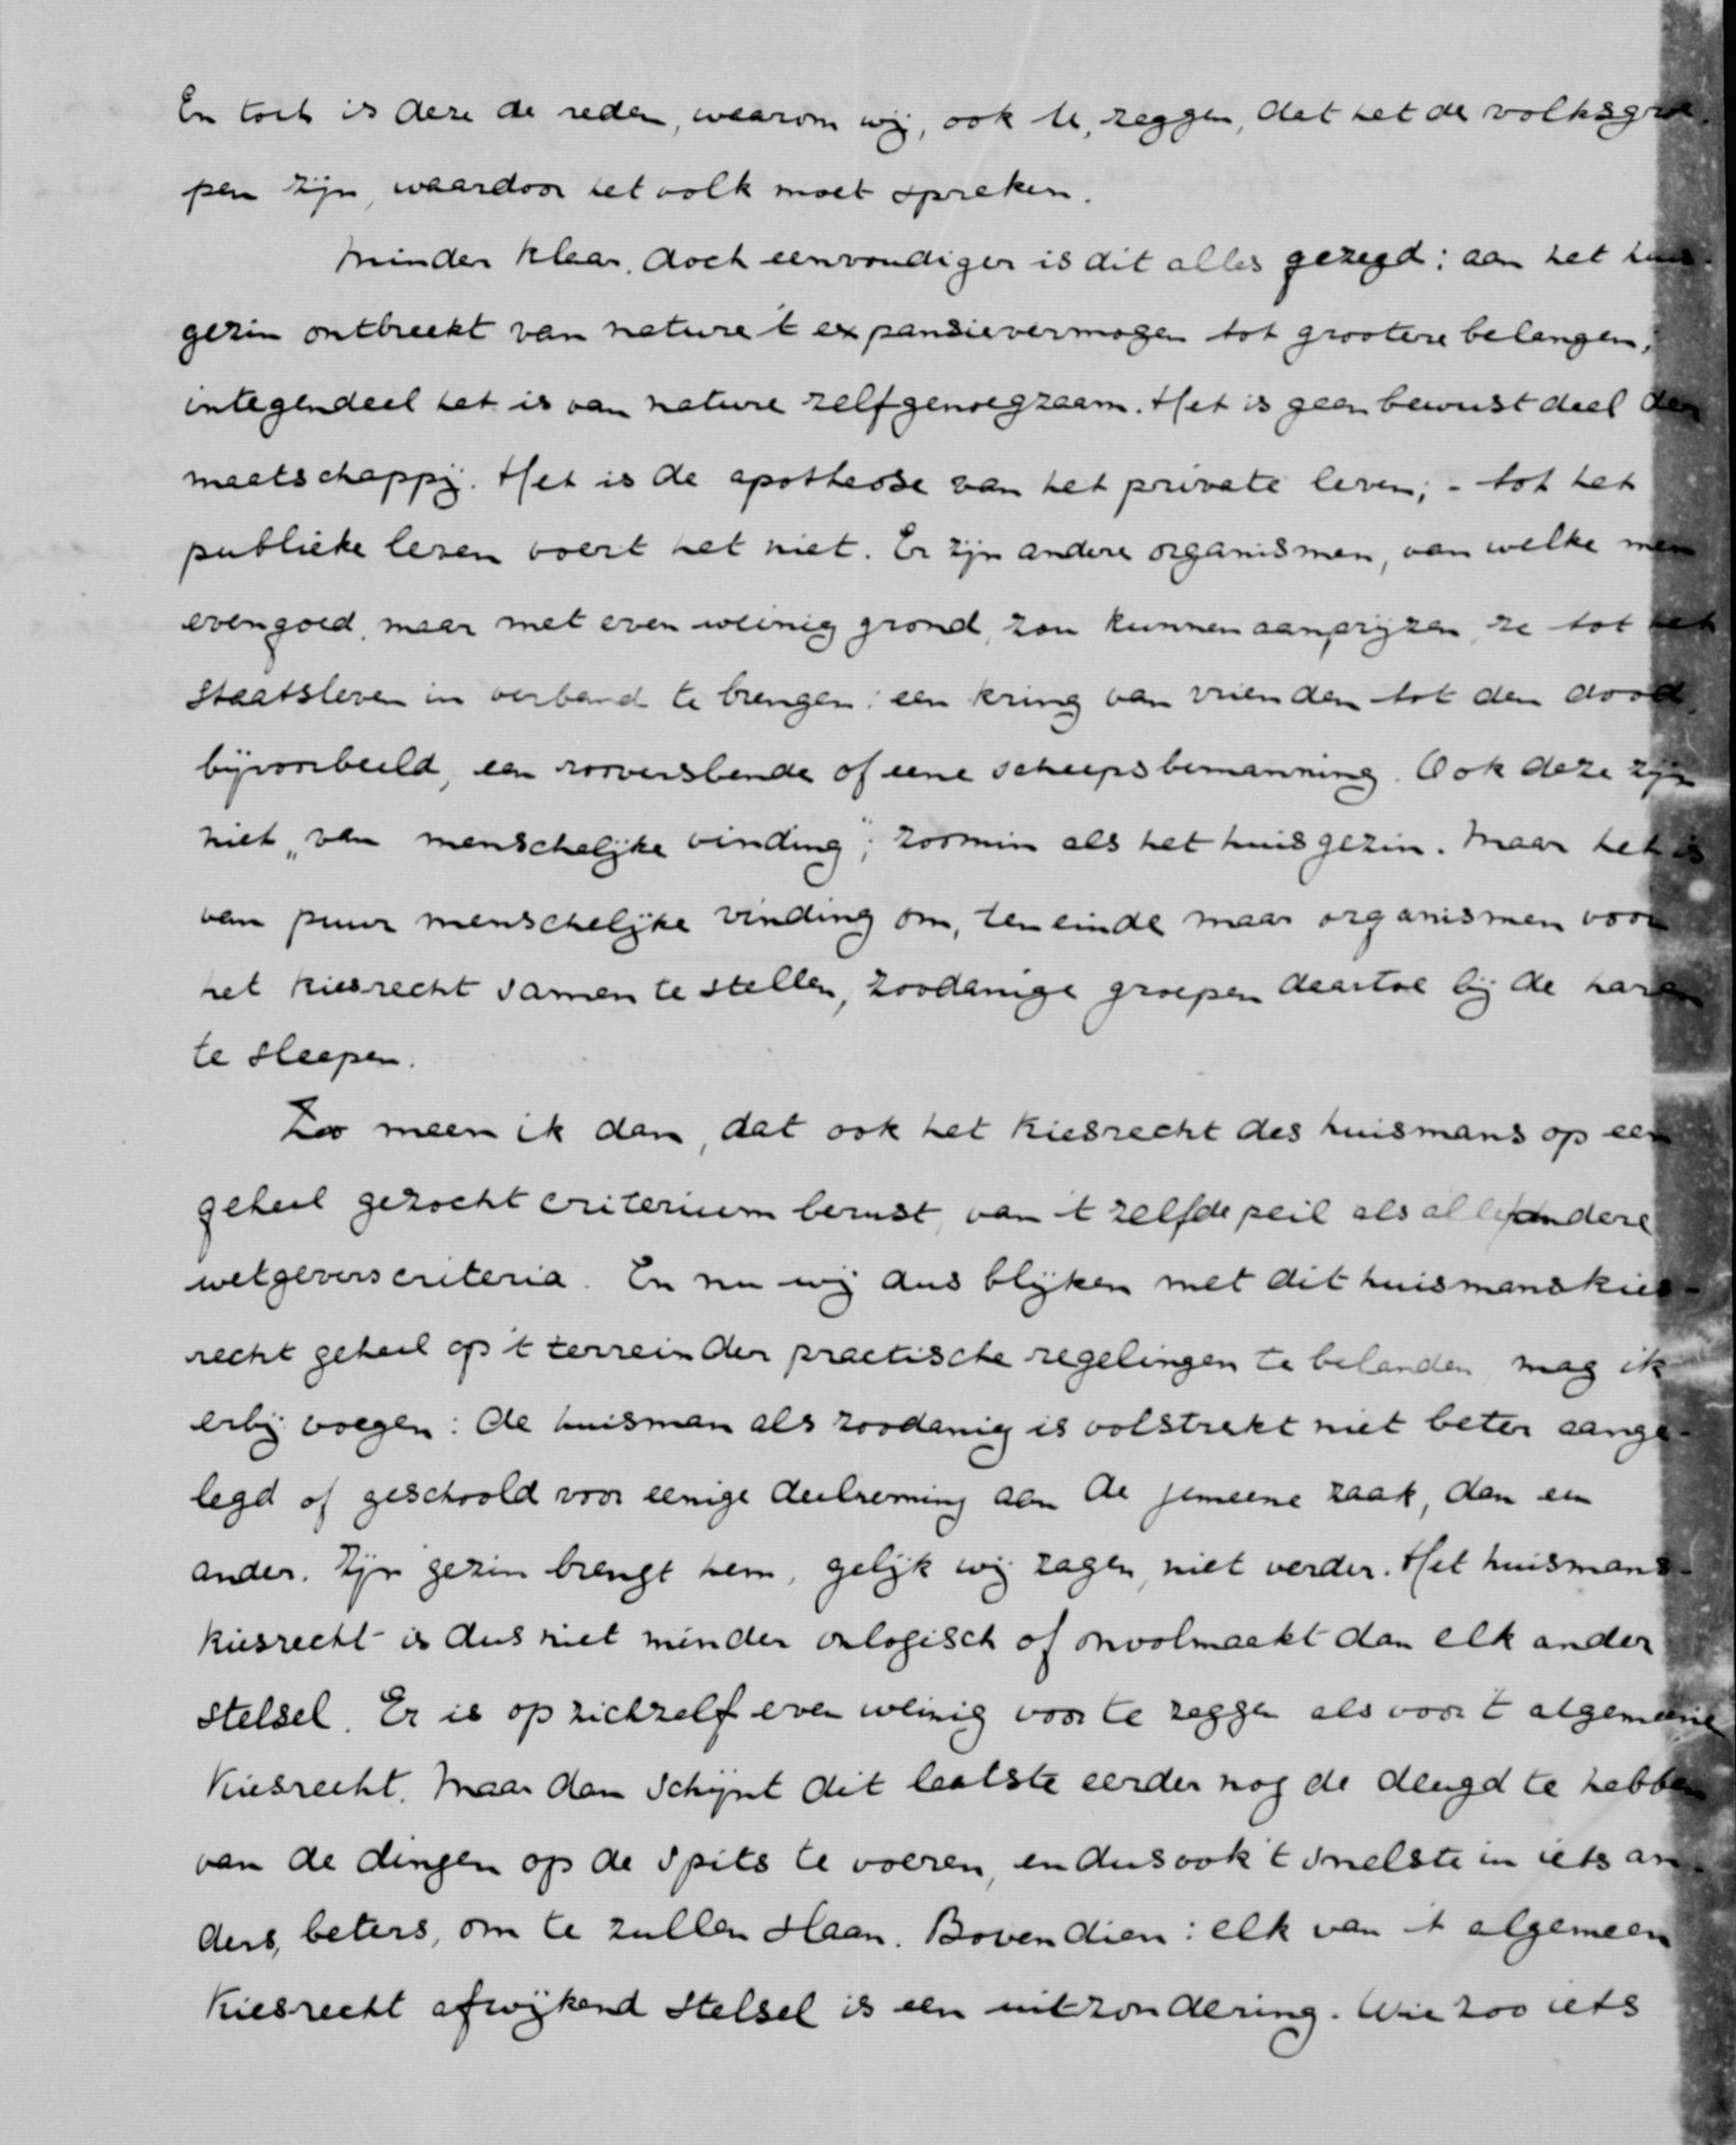 En toch is deze de reden, waarom wij, ook U, zeggen, dat het de volksgroe-
pen zijn, waardoor het volk moet spreken.
Minder klaar, doch eenvoudiger is dit alles gezegd: aan het huis-
gezin ontbreekt van nature 't expansievermogen tot grootere belangen;
integendeel het is van nature zelfgenoegzaam. Het is geen bewust deel der
maatschappij. Het is de apotheose van het private leven; - tot het
publieke leven voert het niet. Er zijn andere organismen, van welke men
evengoed, maar met even weinig grond, zou kunnen aanprijzen, ze tot het
staatsleven in verband te brengen: een kring van vrienden tot den dood,
bijvoorbeeld, een rooversbende of eene scheepsbemanning. Ook deze zijn
niet „van menschelijke vinding"; zoomin als het huisgezin. Maar het is
van puur menschelijke vinding om, teneinde maar organismen voor
het kiesrecht samen te stellen, zoodanige groepen daartoe bij de haren
te sleepen.
Zoo meen ik dan, dat ook het kiesrecht des huismans op een
geheel gezocht criterium berust, van 't zelfde peil als alle andere
wetgeverscriteria. En nu wij dus blijken met dit huismanskies-
recht geheel op 't terrein der practische regelingen te belanden, mag ik
erbij voegen: de huisman als zoodanig is volstrekt niet beter aange-
legd of geschoold voor eenige deelneming aan de gemeene zaak, dan een
ander. Zijn gezin brengt hem, gelijk wij zagen, niet verder. Het huismans-
kiesrecht is dus niet minder onlogisch of onvolmaakt dan elk ander
stelsel. Er is op zichzelf even weinig voor te zeggen als voor 't algemeene
kiesrecht. Maar dan schijnt dit laatste eerder nog de deugd te hebben
van de dingen op de spits te voeren, en dus ook 't snelste in iets an-
ders, beters, om te zullen slaan. Bovendien: elk van 't algemeen
kiesrecht afwijkend stelsel is een uitzondering. Wie zoo iets